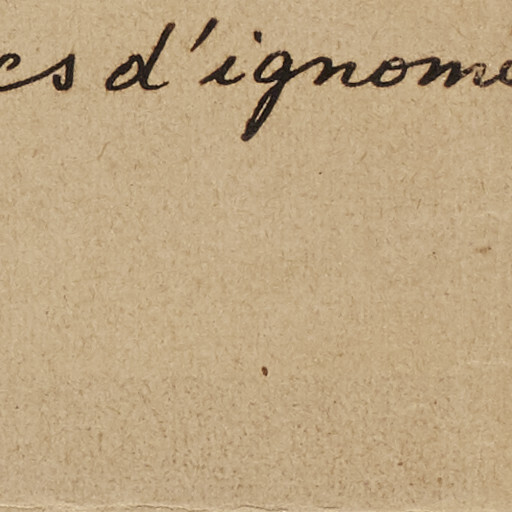 es d'ignomi